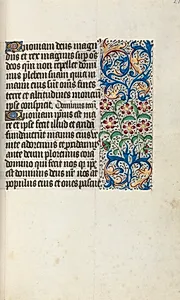 Quoniam deus magn
us et rex magnus sup oes
deos qm non repellet domi
nus plebem suam quia in
manu eius sunt oms fines
terre et altitudines montium
ipse conspicit. Dominus tecum
Quoniam ipsius est ma
re et ipse fecit illud et arid
fundauerunt manus eius ve
nite adoremus et procidam
ante deum ploremus cora
domino qui fecit nos qz ipe
est dominus deus nr nos at
populus eius et oues pascue